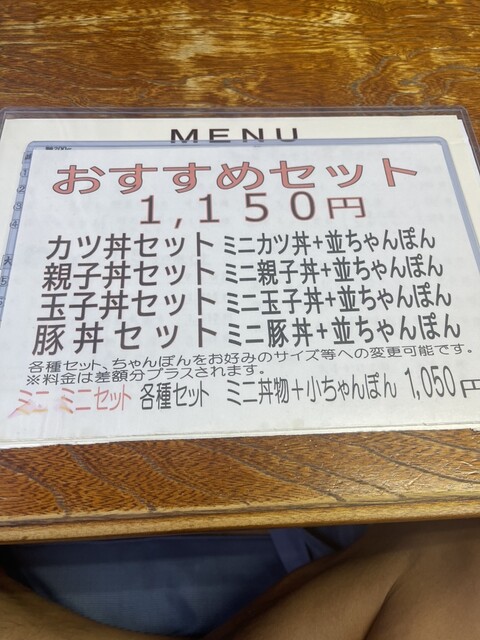 MENU
おすすめセット
1,150円
カツ丼セット ミニカツ丼+並ちゃんぽん
親子丼セット ミニ親子丼+並ちゃんぽん
玉子丼セット ミニ玉子丼+並ちゃんぽん
豚丼セット ミニ豚丼+並ちゃんぽん
各種セット、ちゃんぽんをお好みのサイズ等への変更可能です。
※料金は差額分プラスされます。
ミニ ミニセット 各種セット ミニ丼物+小ちゃんぽん 1,050円